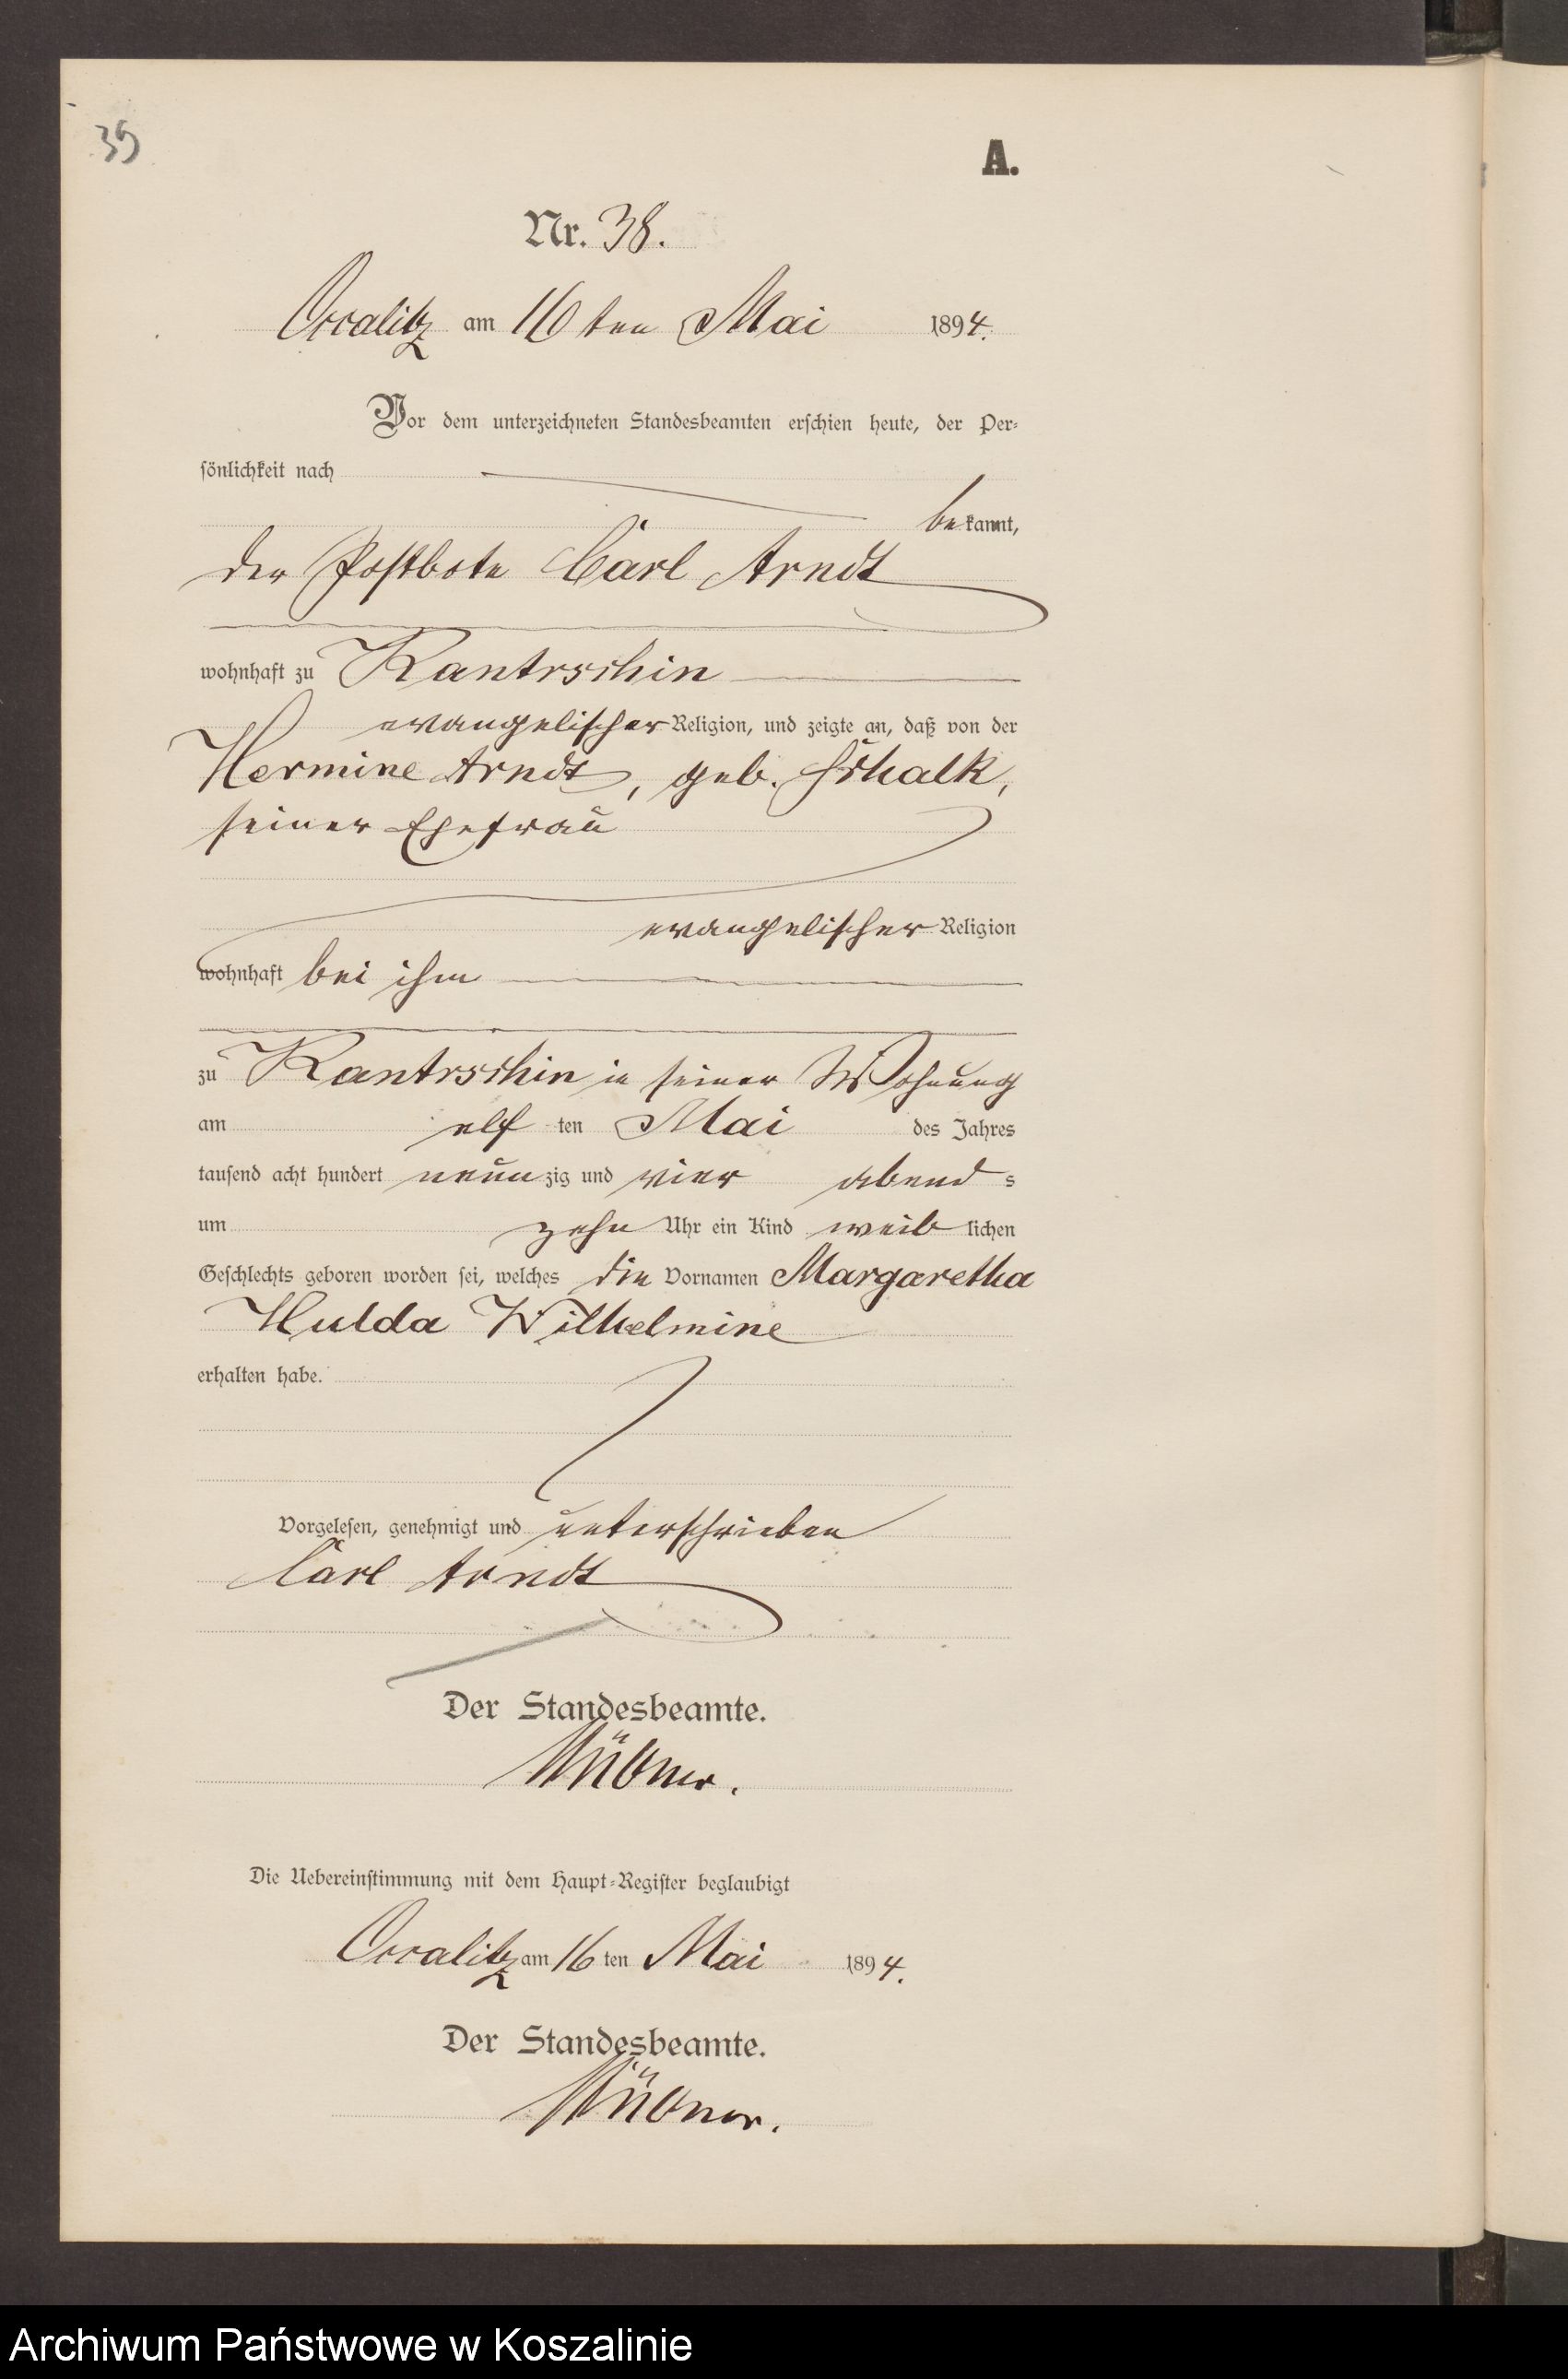 39
A.
Nr. 38.
Occalitz am 16 ten Mai 1894.
Vor dem unterzeichneten Standesbeamten erschien heute, der Per-
sönlichkeit nach
bekannt,
der Postbote Carl Arndt
wohnhaft zu Kantrschin
evangelischer Religion, und zeigte an, daß von der
Hermine Arndt, geb. Schalk,
seiner Ehefrau
evangelischer Religion
wohnhaft bei ihm
zu Kantrschin in seiner Wohnung
am elf ten Mai des Jahres
tausend acht hundert neunzig und vier abends
um zehn Uhr ein Kind weiblichen
Geschlechts geboren worden sei, welches die Vornamen Margaretha
Hulda Wilhelmine
erhalten habe.
Vorgelesen, genehmigt und unterschrieben
Carl Arndt
Der Standesbeamte.
Hübner.
Die Uebereinstimmung mit dem Haupt-Register beglaubigt
Occalitz am 16 ten Mai 1894.
Der Standesbeamte.
Hübner.
Archiwum Państwowe w Koszalinie